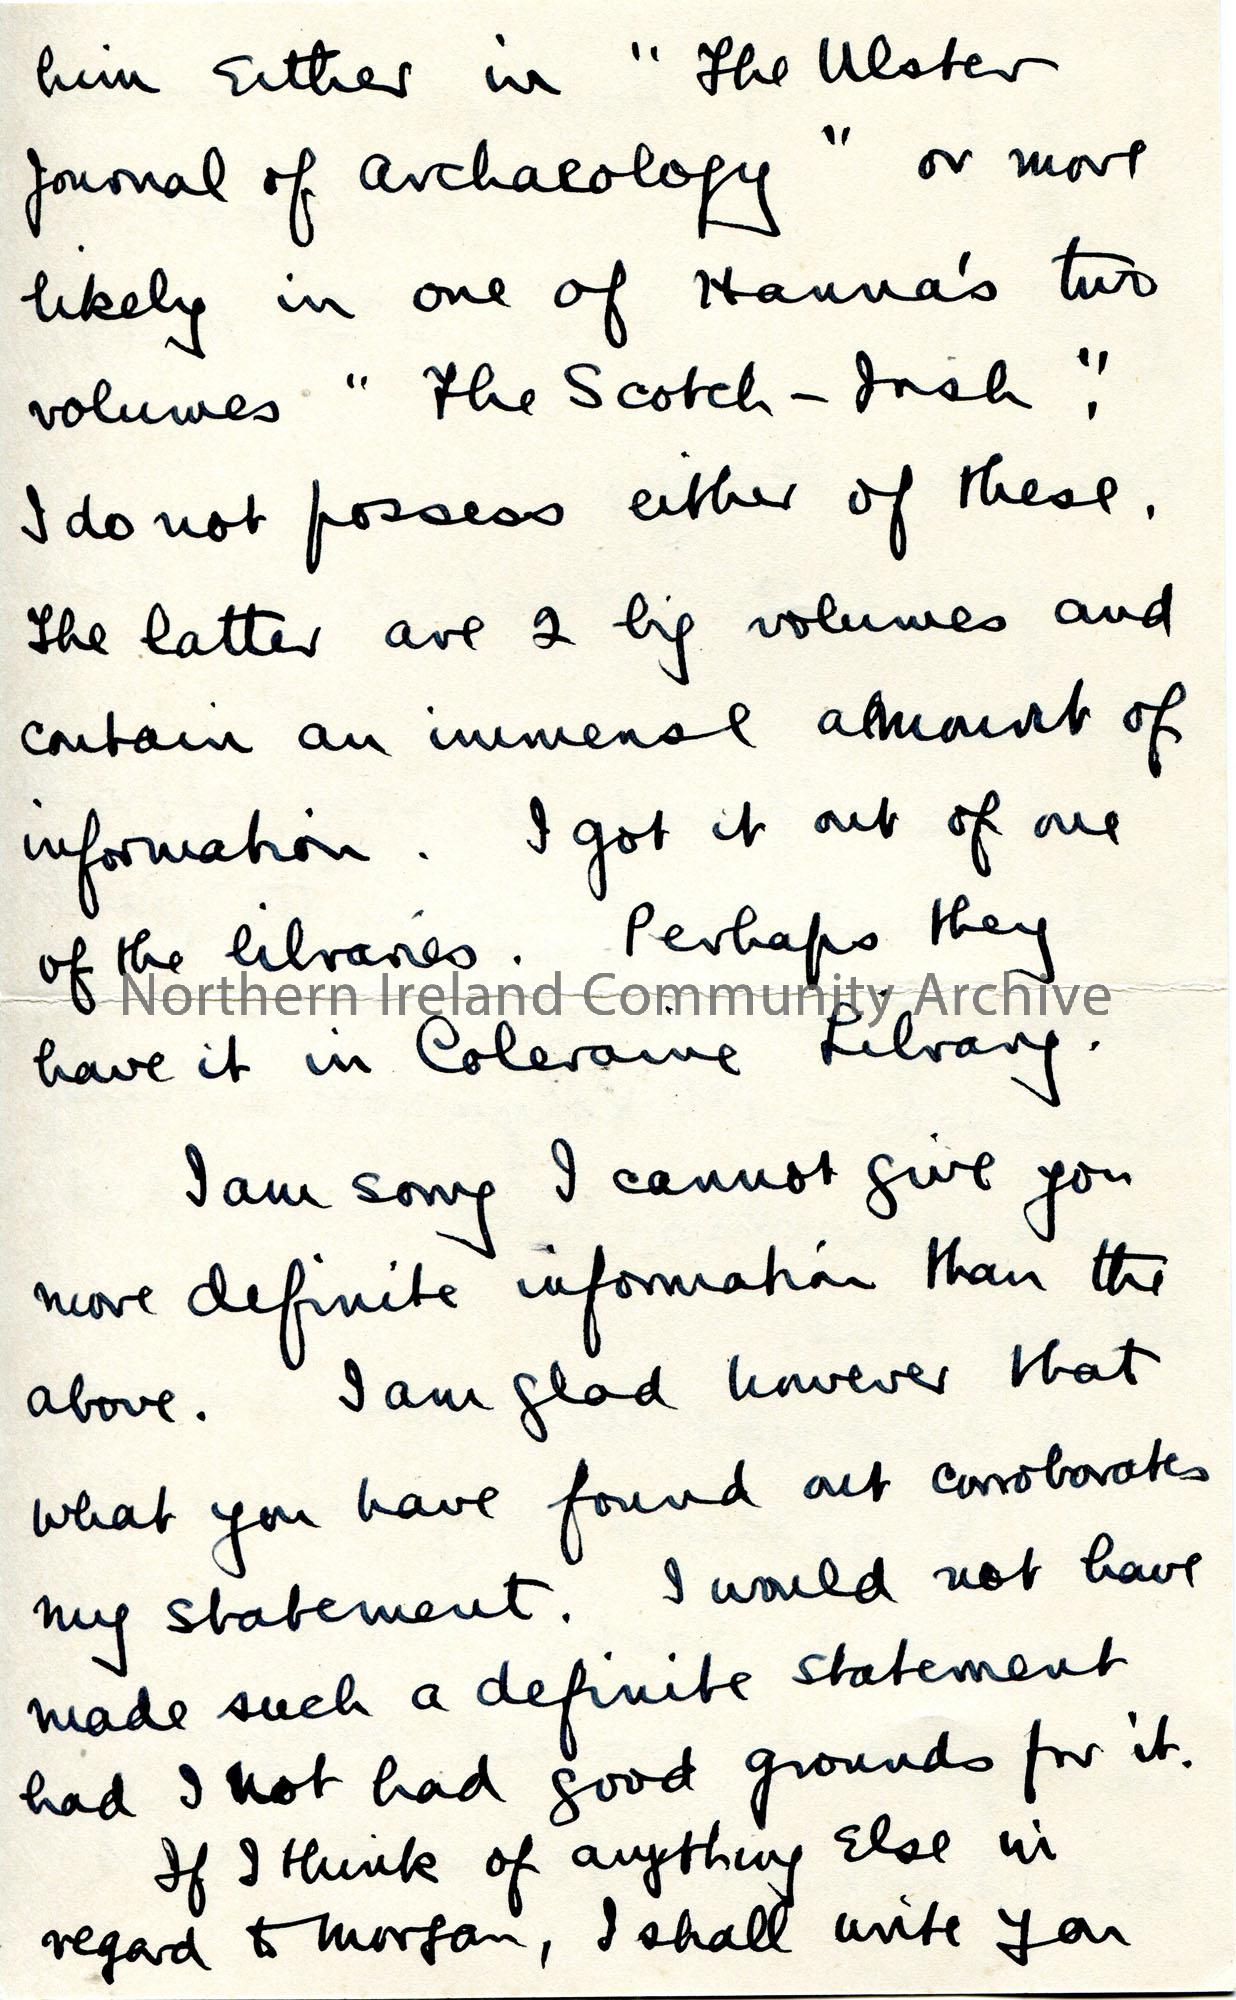 him Either in " The Ulster
Journal of Archaeology " or more
likely in one of Hanna's two
volumes " The Scotch - Irish ",
I do not possess either of these.
The latter are 2 big volumes and
contain an immense amount of
information. I got it out of one
of the libraries. Perhaps they
Northern Ireland Community Archive
have it in Coleraine Library.
I am sorry I cannot give you
more definite information than the
above. I am glad however that
what you have found out corroborates
my statement. I would not have
made such a definite statement
had I not had good grounds for it.
If I think of anything Else in
regard to Morgan, I shall write you